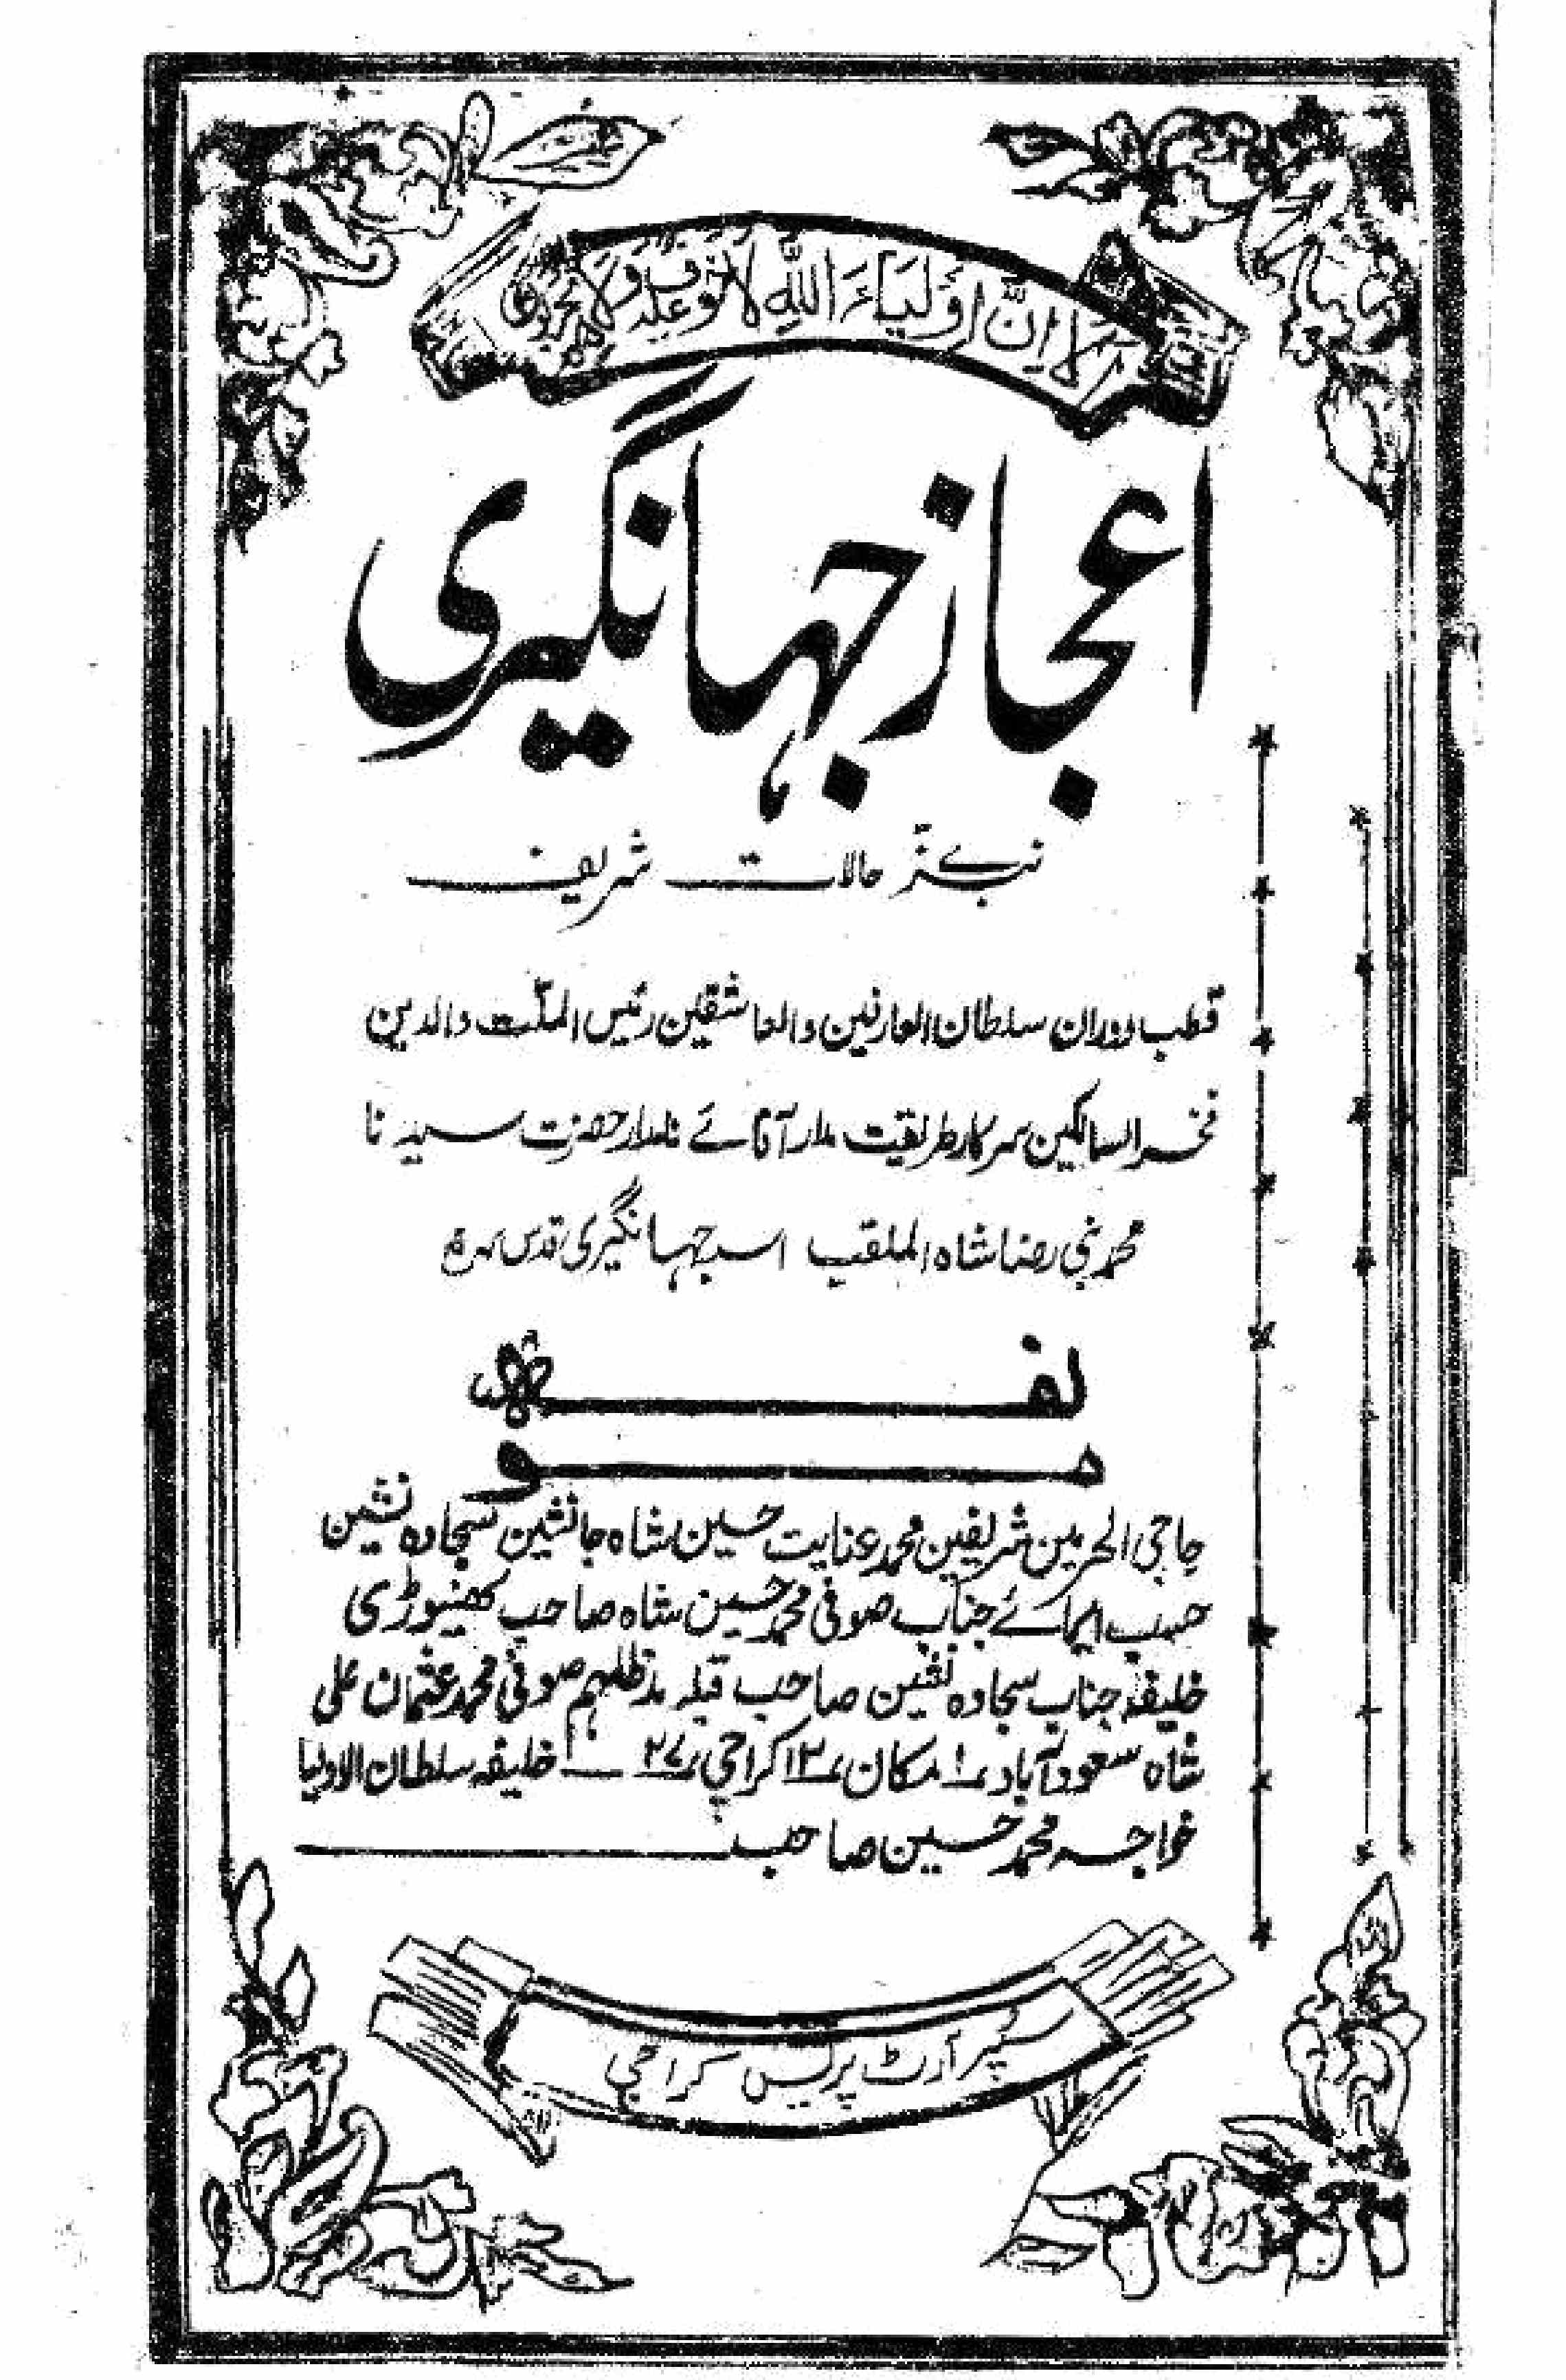 اَلَا اِنَّ اَوْلِيَاءَ اللّٰهِ لَا خَوْفٌ عَلَيْهِمْ وَلَا هُمْ يَحْزَنُوْنَ
اعجاز جہانگیری
حالات شریف
قطب دوران سلطان العارفین والعاشقین رئیس الملّت والدین
فخر السالکین سرکار طریقت مدار آقائے نامدار حضرت سیدنا
محمد نبی رضا شاہ الملقب اسد جہانگیری قدس سرہ
مولفہ
حاجی الحرمین شریفین محمد عنایت حسین شاہ جانشین سجادہ نشین
حسب ایمائے جناب صوفی محمد حسین شاہ صاحب کھنیوڑی
خلیفہ جناب سجادہ نشین صاحب قبلہ مدظلہم صوفی محمد عثمان علی
شاہ سعودآباد مکان کراچی ۲۷ خلیفہ سلطان الاولیا
خواجہ محمد حسین صاحب
سپر آرٹ پریس کراچی